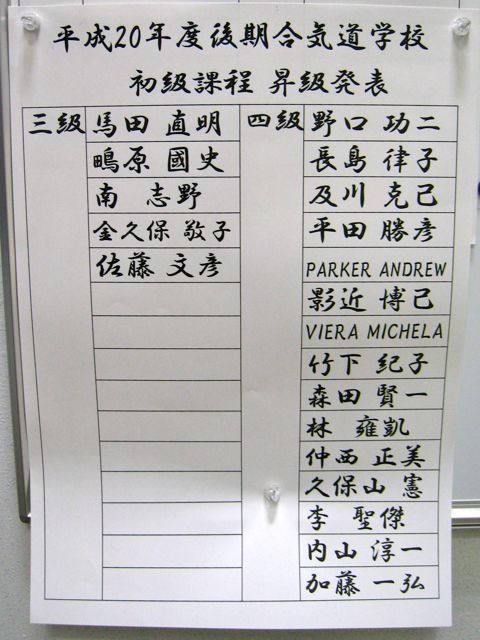 平成20年度後期合気道学校
初級課程 昇級発表
三級
馬田 直明
鴫原 國史
南 志野
金久保 敬子
佐藤 文彦
四級
野口 功二
長島 律子
及川 克己
平田 勝彦
PARKER ANDREW
影近 博己
VIERA MICHELA
竹下 紀子
森田 賢一
林 雍凱
仲西 正美
久保山 憲
李 聖傑
内山 淳一
加藤 一弘